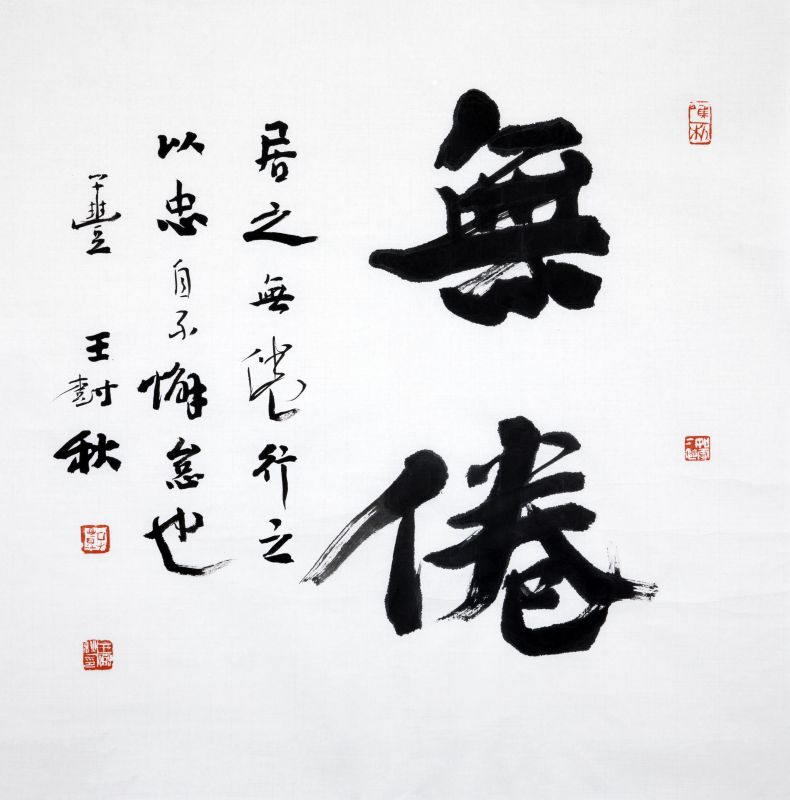 無倦
居之無倦行之
以忠自不懈怠也
王樹秋